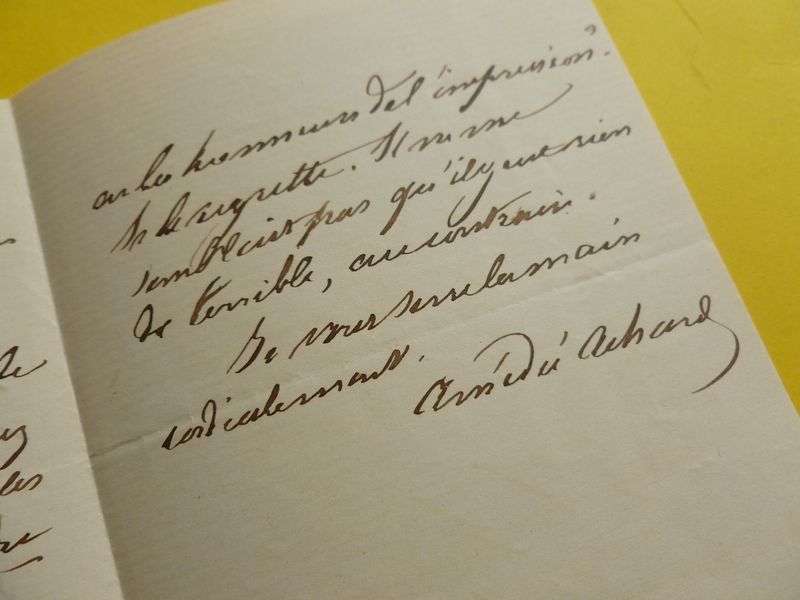 au les honneurs de l'impression?
Je le regrette. Il ne me
semblait pas qu'il y eut rien
de terrible, au contraire.
Je vous serre la main
cordialement.
Amédée Achard
de